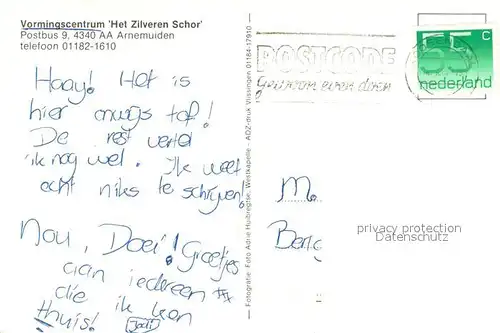 Vormingscentrum 'Het Zilveren Schor'
Postbus 9, 4340 AA Arnemuiden
telefoon 01182-1610
Haay! Het is
hier onwijs tof!
De rest vertel
ik nog wel. Ik weet
echt niks te schrijven!
Nou, Doei! Groetjes
aan iedereen
die ik ken
thuis!
Fotografie: Foto Adrie Huibregtse, Westkapelle - ADZ-druk Vlissingen 01184-17910
POSTCODE
gewoon even doen
55 c
nederland
M
Berg
privacy protection
Datenschutz